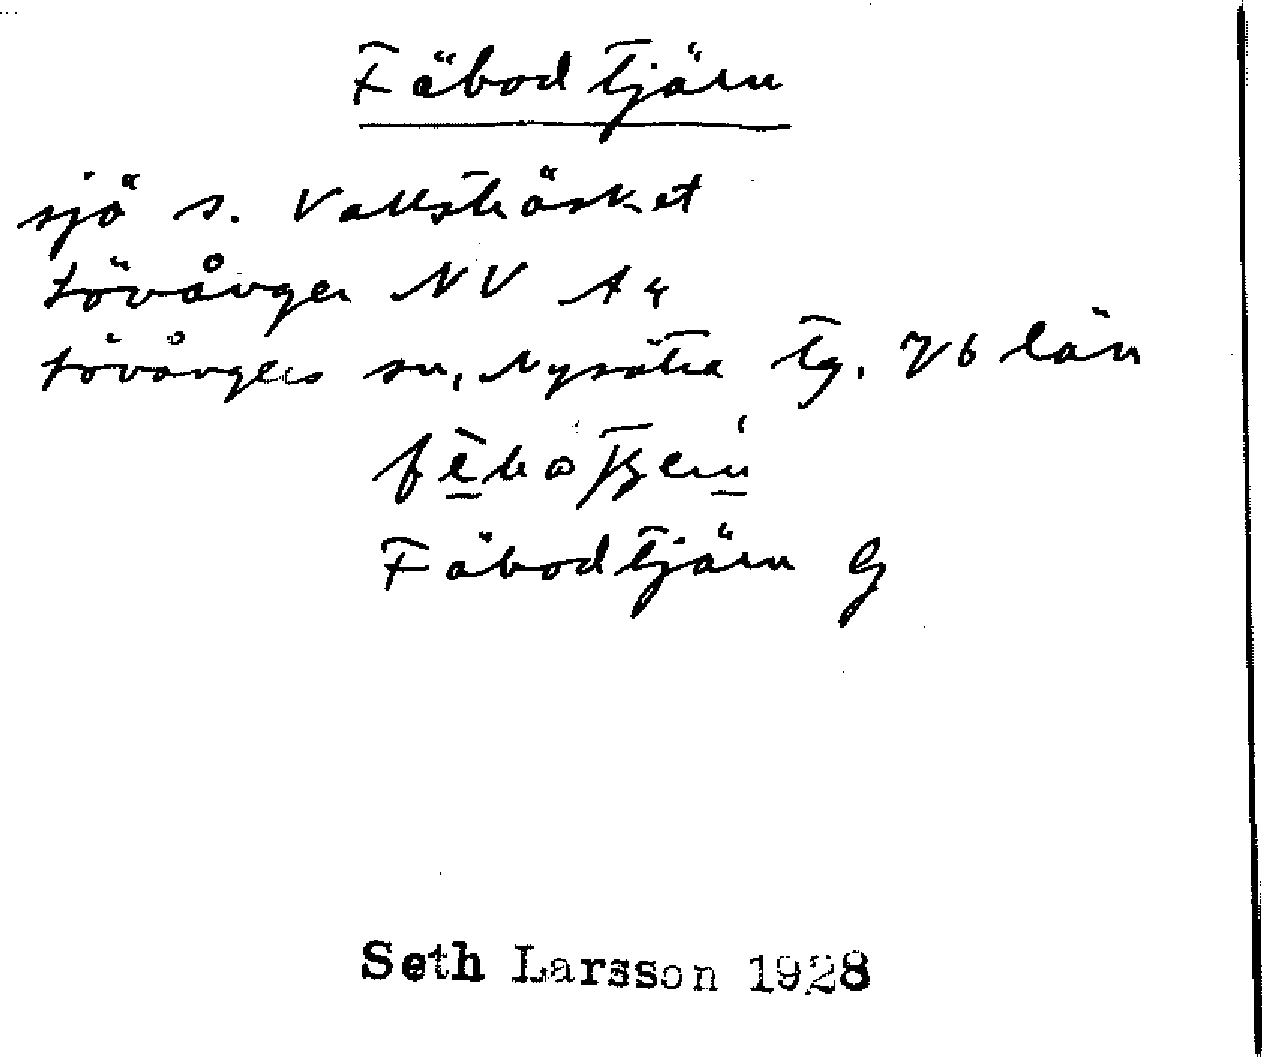 Fäbodtjärn
sjö s. Vallsträsket
Lövånger NV A4
Lövångers sn, Nysätra tg. Vb län
Fäbodtjärn G
Seth Larsson 1928